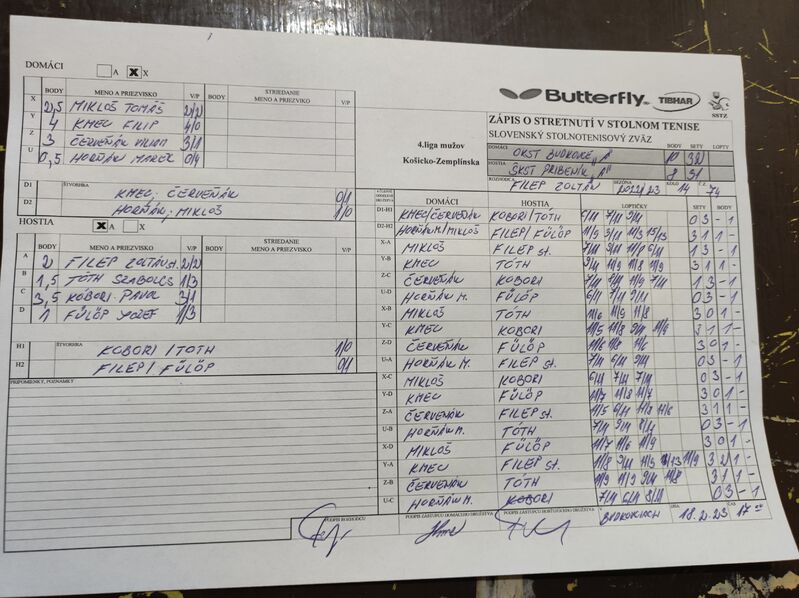 DOMÁCI A X X
BODY MENO A PRIEZVISKO V/P BODY STRIEDANIE MENO A PRIEZVIKO V/P
X 2,5 MIKLOŠ TOMÁŠ 2/2
Y 4 KMEC FILIP 4/0
Z 3 ČERVEŇÁK VILIAM 3/1
U 0,5 HORŇÁK MAREK 0/4
D1 ŠTVORHRA KMEC, ČERVEŇÁK 0/1
D2 HORŇÁK, MIKLOŠ 1/0
HOSTIA X A X
BODY MENO A PRIEZVISKO V/P BODY STRIEDANIE MENO A PRIEZVISKO V/P
A 2 FILEP ZOLTÁN st. 2/2
B 1,5 TÓTH SZABOLCS 1/3
C 3,5 KOBORI PAVOL 3/1
D 1 FÜLÖP JOZEF 1/3
H1 ŠTVORHRA KOBORI / TOTH 1/0
H2 FILEP / FÜLÖP 0/1
PRIPOMIENKY, POZNÁMKY
Butterfly TIBHAR SSTZ
ZÁPIS O STRETNUTÍ V STOLNOM TENISE
SLOVENSKÝ STOLNOTENISOVÝ ZVÄZ
4.liga mužov
Košicko-Zemplínska
DOMÁCI BODY SETY LOPTY
OKST BUDKOVCE "A" 10 38
HOSTIA ŠKST PRIBENÍK "A" 8 31
ROZHODCA FILEP ZOLTÁN SEZÓNA 2022/23 KOLO 14 Č.Z. 74
DOMÁCI HOSTIA LOPTIČKY SETY BODY
D1-H1 KMEC/ČERVEŇÁK KOBORI/TÓTH 6/11 7/11 9/11 0 3 - 1
D2-H2 HORŇÁK M/MIKLOŠ FILEP/FÜLÖP 11/9 3/11 11/3 15/13 3 1 1 -
X-A MIKLOŠ FILEP st. 1 3 - 1
Y-B KMEC TÓTH 9/11 11/9 11/8 11/9 3 1 1 -
Z-C ČERVEŇÁK KOBORI 1 3 - 1
U-D HORŇÁK M. FÜLÖP 6/11 7/11 9/11 0 3 - 1
X-B MIKLOŠ TÓTH 11/6 11/9 11/8 3 0 1 -
Y-C KMEC KOBORI 11/5 11/8 9/11 11/9 3 1 1 -
Z-D ČERVEŇÁK FÜLÖP 11/6 11/8 11/6 3 0 1 -
U-A HORŇÁK M. FILEP st. 7/11 6/11 9/11 0 3 - 1
X-C MIKLOŠ KOBORI 6/11 7/11 7/11 0 3 - 1
Y-D KMEC FÜLÖP 11/7 11/8 11/7 3 0 1 -
Z-A ČERVEŇÁK FILEP st. 11/5 6/11 11/8 11/6 3 1 1 -
U-B HORŇÁK M. TÓTH 7/11 9/11 8/11 0 3 - 1
X-D MIKLOŠ FÜLÖP 11/7 11/6 11/9 3 0 1 -
Y-A KMEC FILEP st. 11/8 9/11 11/5 11/13 11/9 3 2 1 -
Z-B ČERVEŇÁK TÓTH 11/9 11/9 9/11 11/8 3 1 1 -
U-C HORŇÁK M. KOBORI 7/11 6/11 8/11 0 3 - 1
PODPIS ROZHODCU PODPIS ZÁSTUPCU DOMÁCEHO DRUŽSTVA PODPIS ZÁSTUPCU HOSŤUJÚCEHO DRUŽSTVA V BUDKOVCIACH DŇA 18.2.23 ČAS 17 00